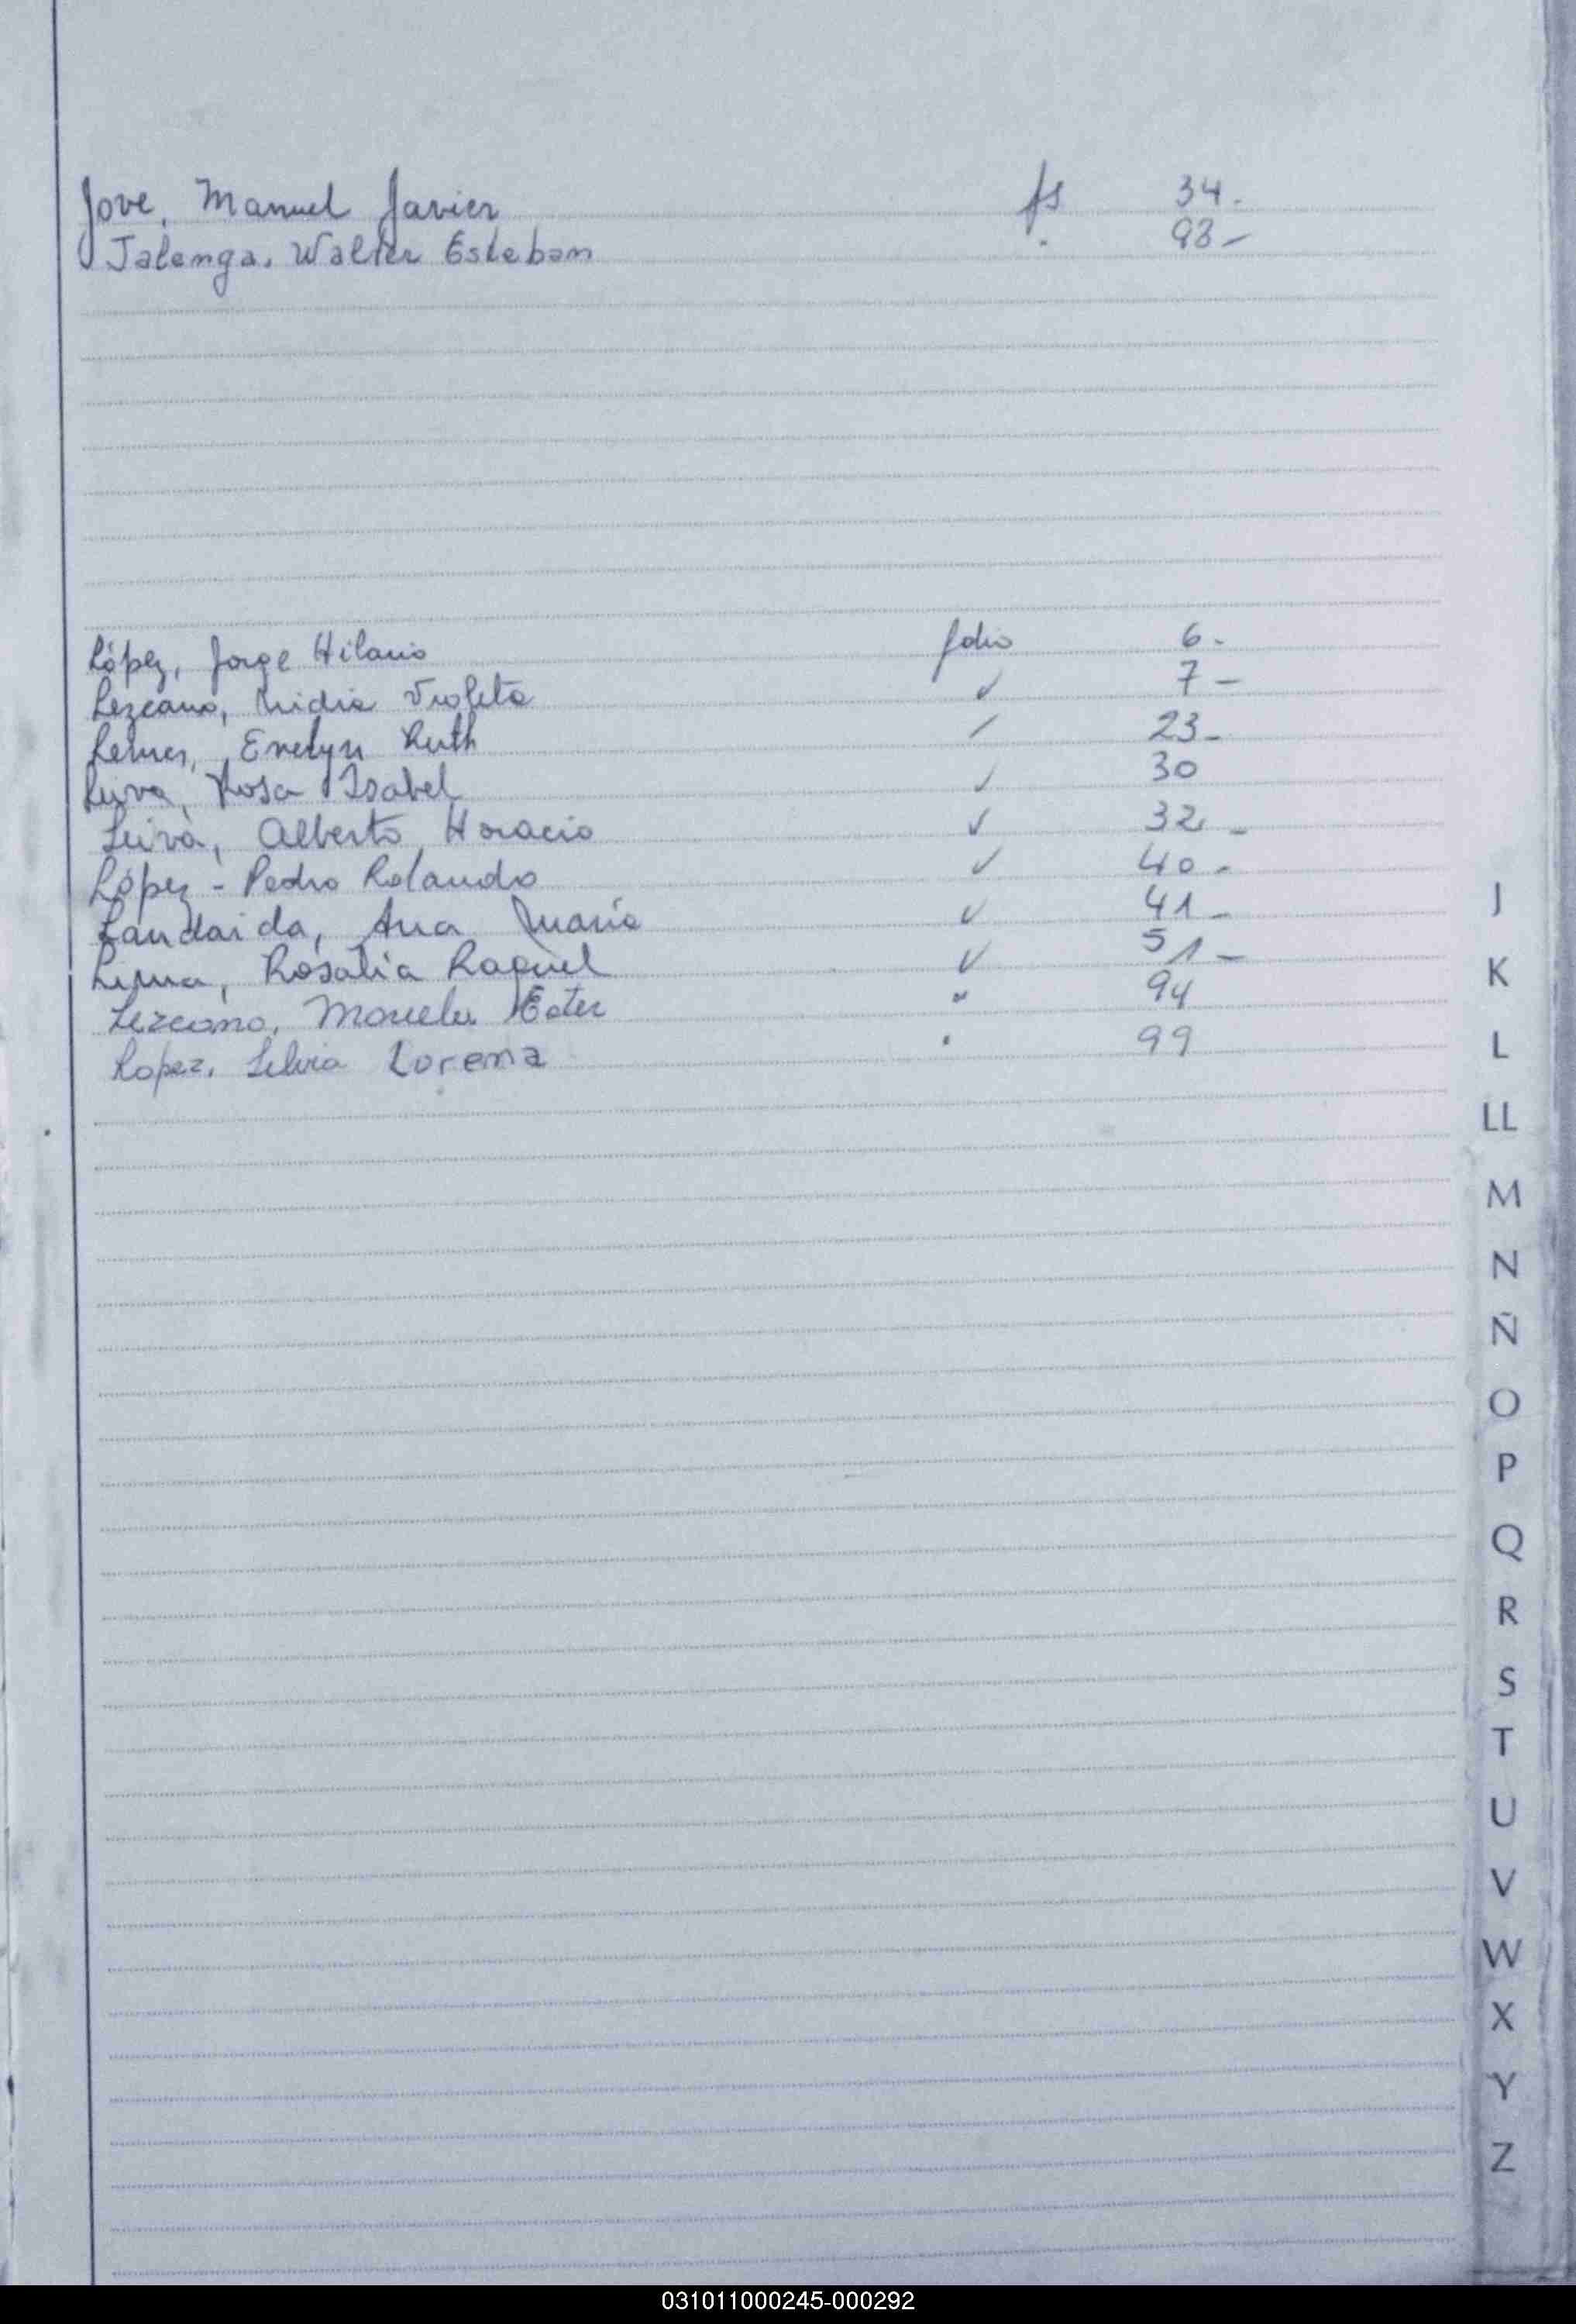 Jove, Manuel Javier fs 34.
Jalenga, Walter Esteban . 98-
López, Jorge Hilario folio 6-
Lezcano, Nidia Violeta ✓ 7-
Evelyn Ruth ✓ 23-
Leiva, Rosa Isabel ✓ 30
Leiva, Alberto Horacio ✓ 32-
López - Pedro Rolando ✓ 40-
Landaida, Ana María ✓ 41-
Lema, Rosalía Raquel ✓ 51-
Lezcano, Marcela Ester " 94
Lopez, Silvia Lorena . 99
J
K
L
LL
M
N
Ñ
O
P
Q
R
S
T
U
V
W
X
Y
Z
031011000245-000292